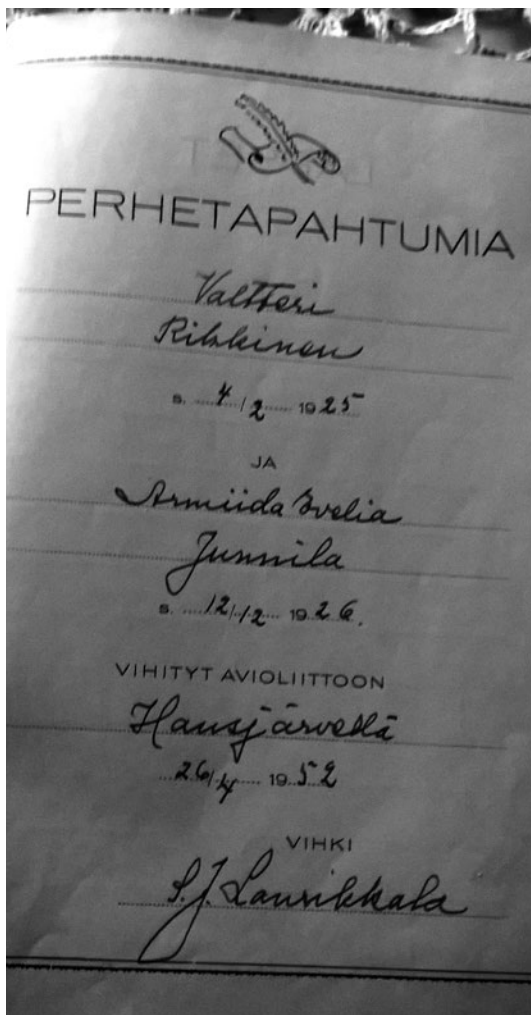 PERHETAPAHTUMIA
Valtteri
Rikkinen
s. 4/2 1925
JA
Armiida Ivelia
Junnila
s. 12/12 1926.
VIHITYT AVIOLIITTOON
Hausjärvellä
26/4 1952
VIHKI
S.J. Laurikkala